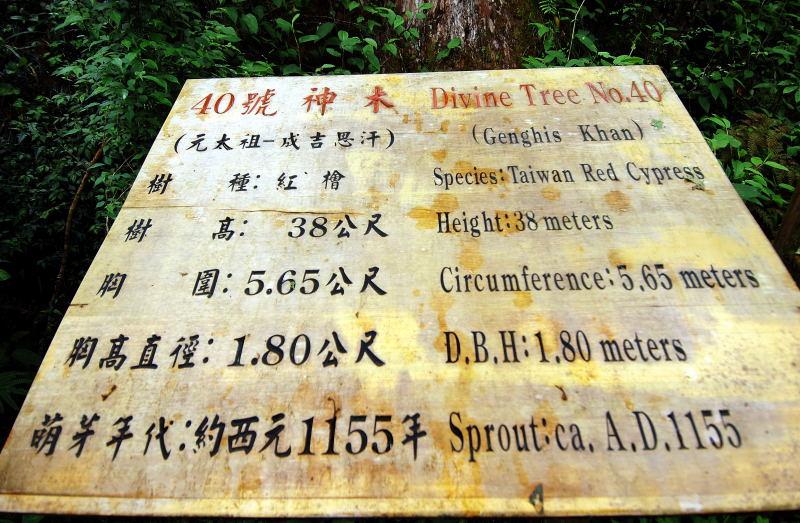 40號 神木 Divine Tree No.40
(元太祖-成吉思汗) (Genghis Khan)
樹 種: 紅 檜 Species: Taiwan Red Cypress
樹 高: 38公尺 Height: 38 meters
胸 圍: 5.65公尺 Circumference: 5.65 meters
胸高直徑: 1.80公尺 D.B.H: 1.80 meters
萌芽年代:約西元1155年 Sprout: ca. A.D.1155